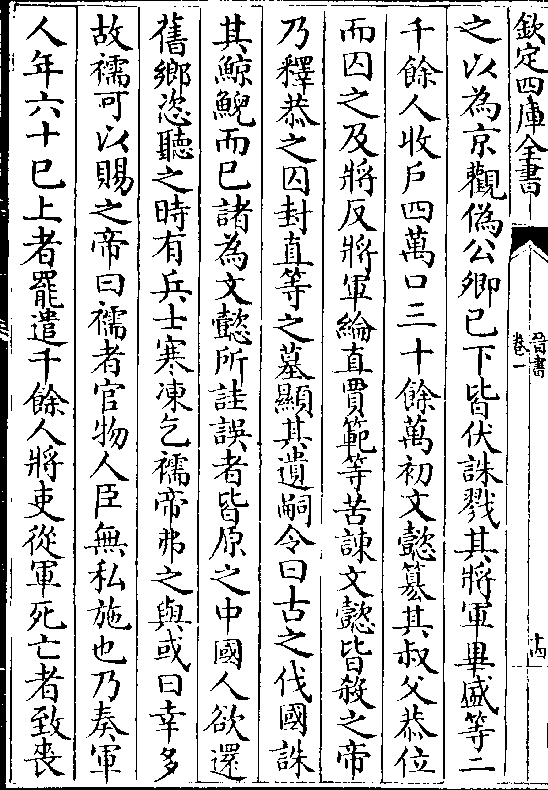 欽定四庫全書
晉書
卷一
十四
之以為京觀偽公卿已下皆伏誅戮其將軍畢盛等二
千餘人收戶四萬口三十餘萬初文懿簒其叔父恭位
而囚之及將反將軍綸直賈範等苦諫文懿皆殺之帝
乃釋恭之囚封直等之墓顯其遺嗣令曰古之伐國誅
其鯨鯢而已諸為文懿所詿誤者皆原之中國人欲還
舊鄉恣聽之時有兵士寒凍乞襦帝弗之與或曰幸多
故襦可以賜之帝曰襦者官物人臣無私施也乃奏軍
人年六十已上者罷遣千餘人將吏從軍死亡者致喪